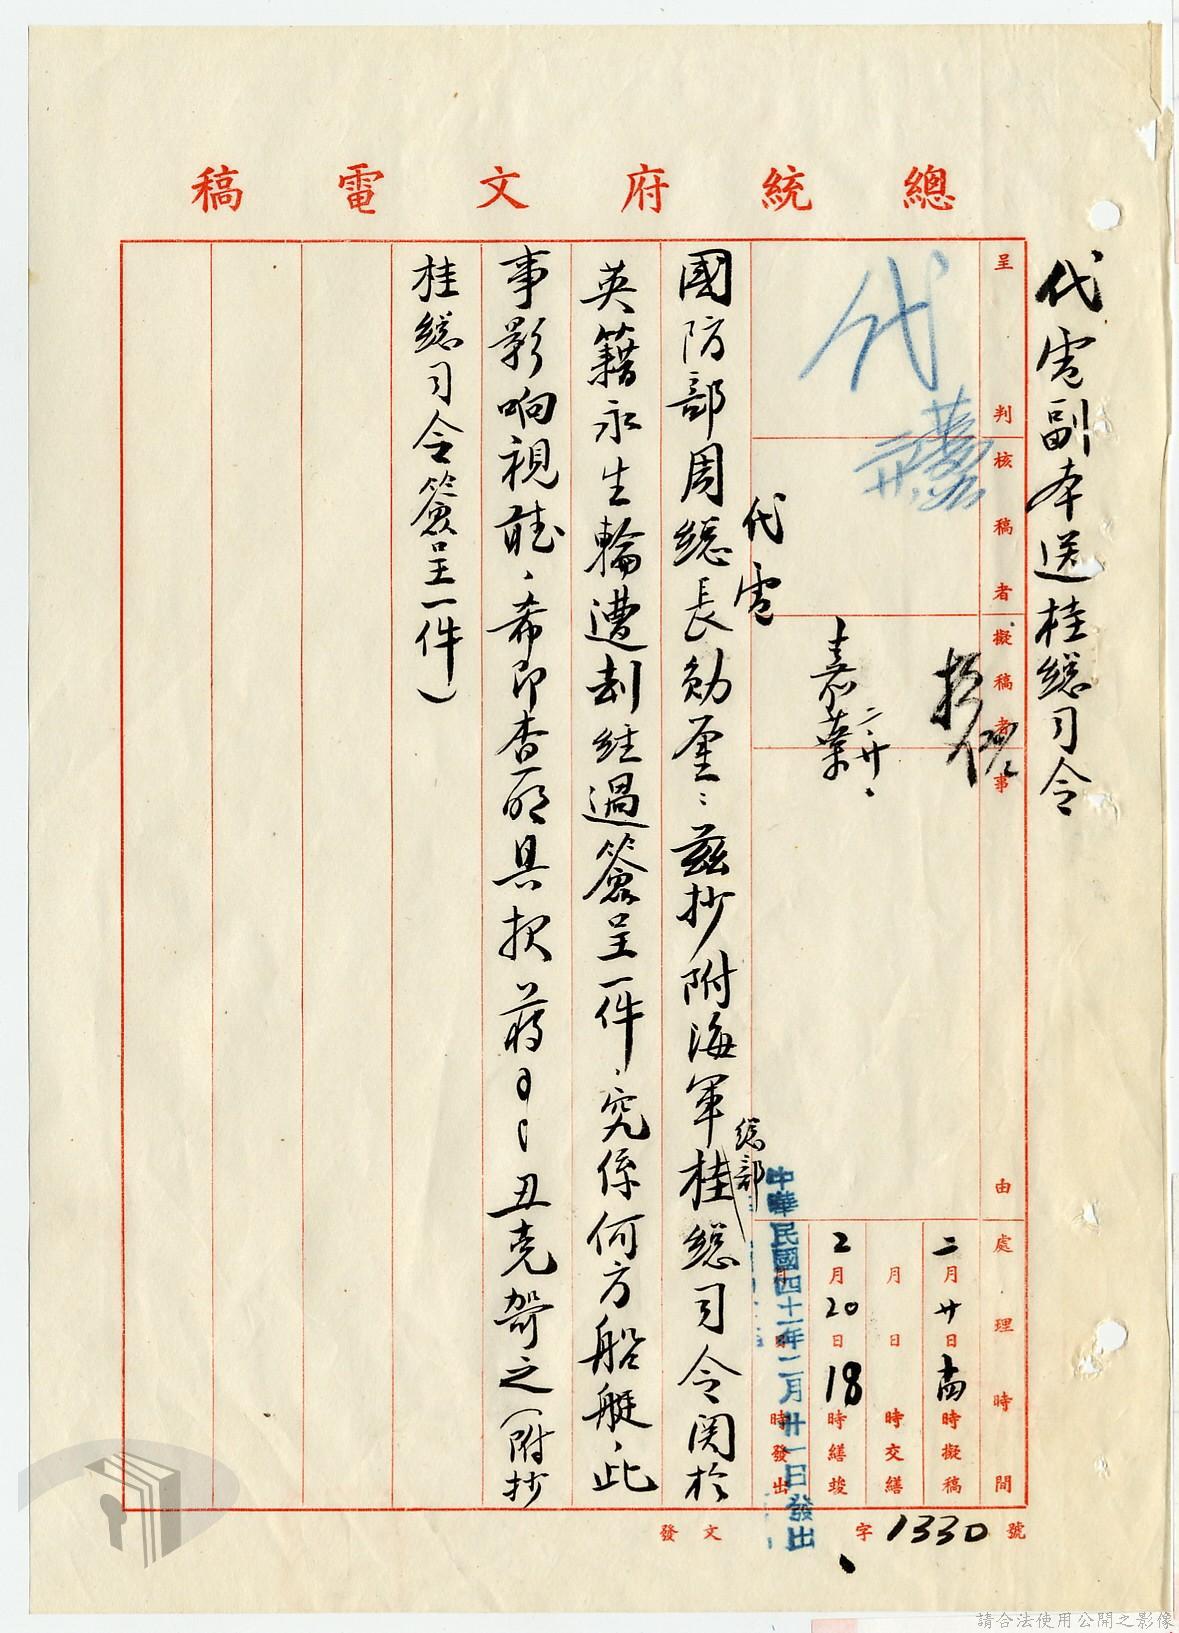 總統府文電稿
代電副本送桂總司令
呈判
核稿者
擬稿者
事由
處理時間
代
代電
二月廿日
時擬稿
月日時交繕
2月20日18時繕竣
時發出
中華民國四十一年二月廿一日發出
國防部周總長勛鑒：茲抄附海軍總部桂總司令関於
英籍永生輪遭刦經過簽呈一件，究係何方船艇，此
事影响視聽，希即查明具報蔣
丑
之（附抄
桂總司令簽呈一件）
發文 字1330號
請合法使用公開之影像